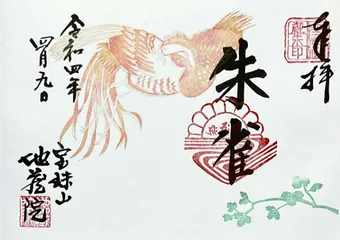 奉拝
朱雀
令和四年
四月九日
宝珠山
地蔵院